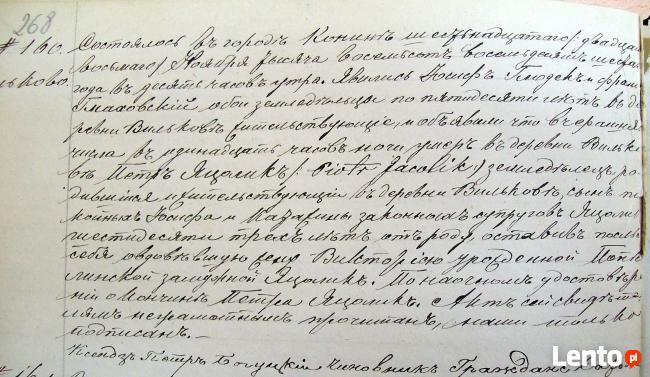 268
#160. Состоялось въ городѣ Конинѣ шестьнадцатаго /: двадцать
восьмаго/ Ноября тысяча восемьсотъ восемьдесятъ
ьково. года въ десять часовъ утра. Явились Іосифъ и Фран
обои земледѣльцы по пятидесяти лѣтъ въ де
ревни Вильковѣ жительствующіе, и объявили что вчерашняго
числа въ одинадцать часовъ ночи умеръ въ деревни Вилько
вѣ Петръ Яцоликъ /: Piotr Jacolik :/ земледѣлецъ, ро
дившійся и жительствующій въ деревни Вильковѣ, сынъ по
койныхъ Іосифа и Катарины законныхъ супруговъ
шестидесяти трехъ лѣтъ отъ роду, оставивъ послѣ
себя овдовѣвшую жену Викторію урожденной
линской замужной Яцоликъ. По наочномъ удостовѣре
ніи о кончинѣ Петра Яцоликъ. Актъ сей свидѣте
лямъ неграмотнымъ прочитанъ, нами только
подписанъ. —
Ксендзъ Петръ Чиновникъ Гражданс
Lento.pl